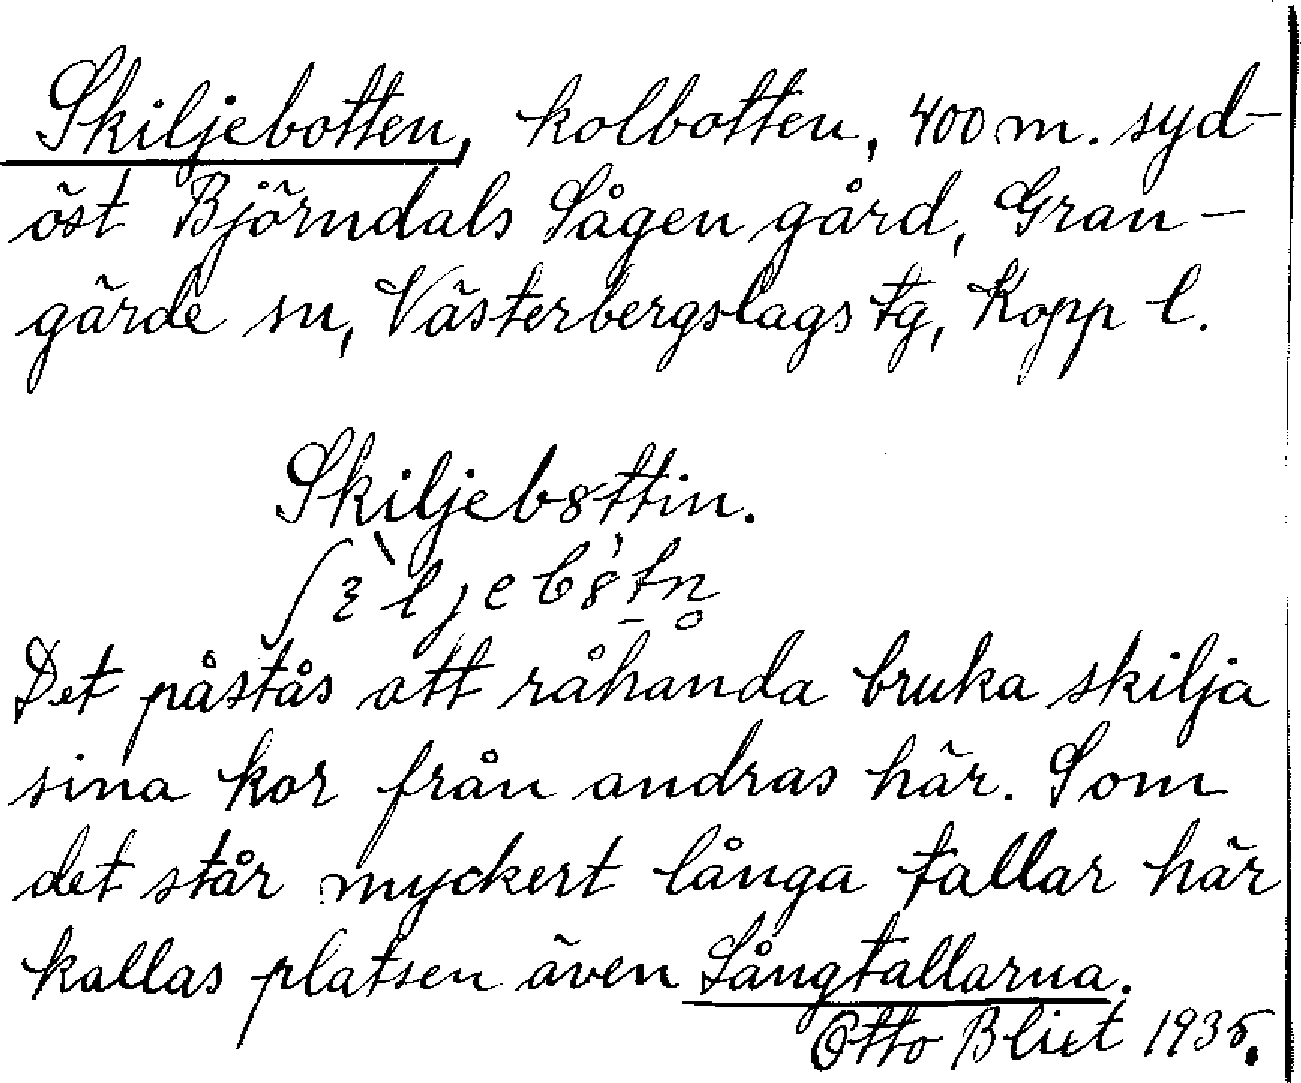 Skiljebotten, kolbotten, 400 m. syd-
öst Björndals Sågen gård, Gran-
gärde sn, Västerbergslags tg, Kopp l.
Skiljeb8ttin.
ʃɛ̀ljeb8́tn̥
Det påstås att råhanda bruka skilja
sina kor från andras här. Som
det står myckert långa tallar här
kallas platsen även Långtallarna.
Otto Blixt 1935.